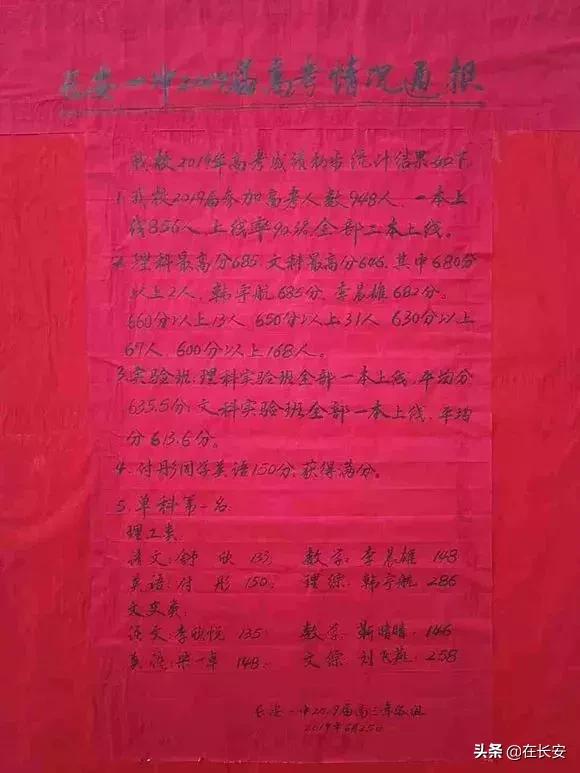 长安一中2019届高考情况通报
我校2019年高考成绩初步统计结果如下
1.我校2019届参加高考人数948人,一本上
线856人,上线率90.3%,全部二本上线。
2.理科最高分685,文科最高分646,其中680分
以上2人,韩宇航685分,李昱雄682分。
660分以上13人,650分以上31人,630分以上
67人,600分以上168人。
3.实验班:理科实验班全部一本上线,平均分
635.5分;文科实验班全部一本上线,平均
分613.6分。
4.付彤同学英语150分,获得满分。
5.单科第一名:
理工类:
语文:钟欣 133 数学:李昱雄 148
英语:付彤 150 理综:韩宇航 286
文史类:
语文:李欣悦 135 数学:靳晴晴 146
英语:梁一卓 148 文综:刘飞燕 258
长安一中2019届高三年级组
2019年6月25日
头条 @在长安